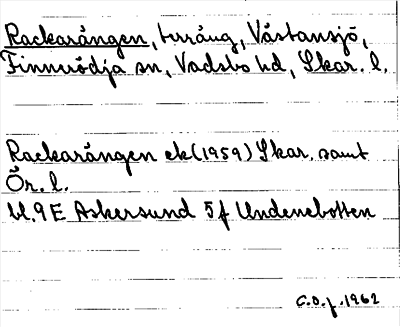 Rackarången, terräng, Västansjö,
Finnerödja sn, Vadsbo hd, Skar. l.
Rackarången ek (1959) Skar. samt
Ör. l.
bl. 9E Askersund 5f Undenebotten
C.O.f. 1962